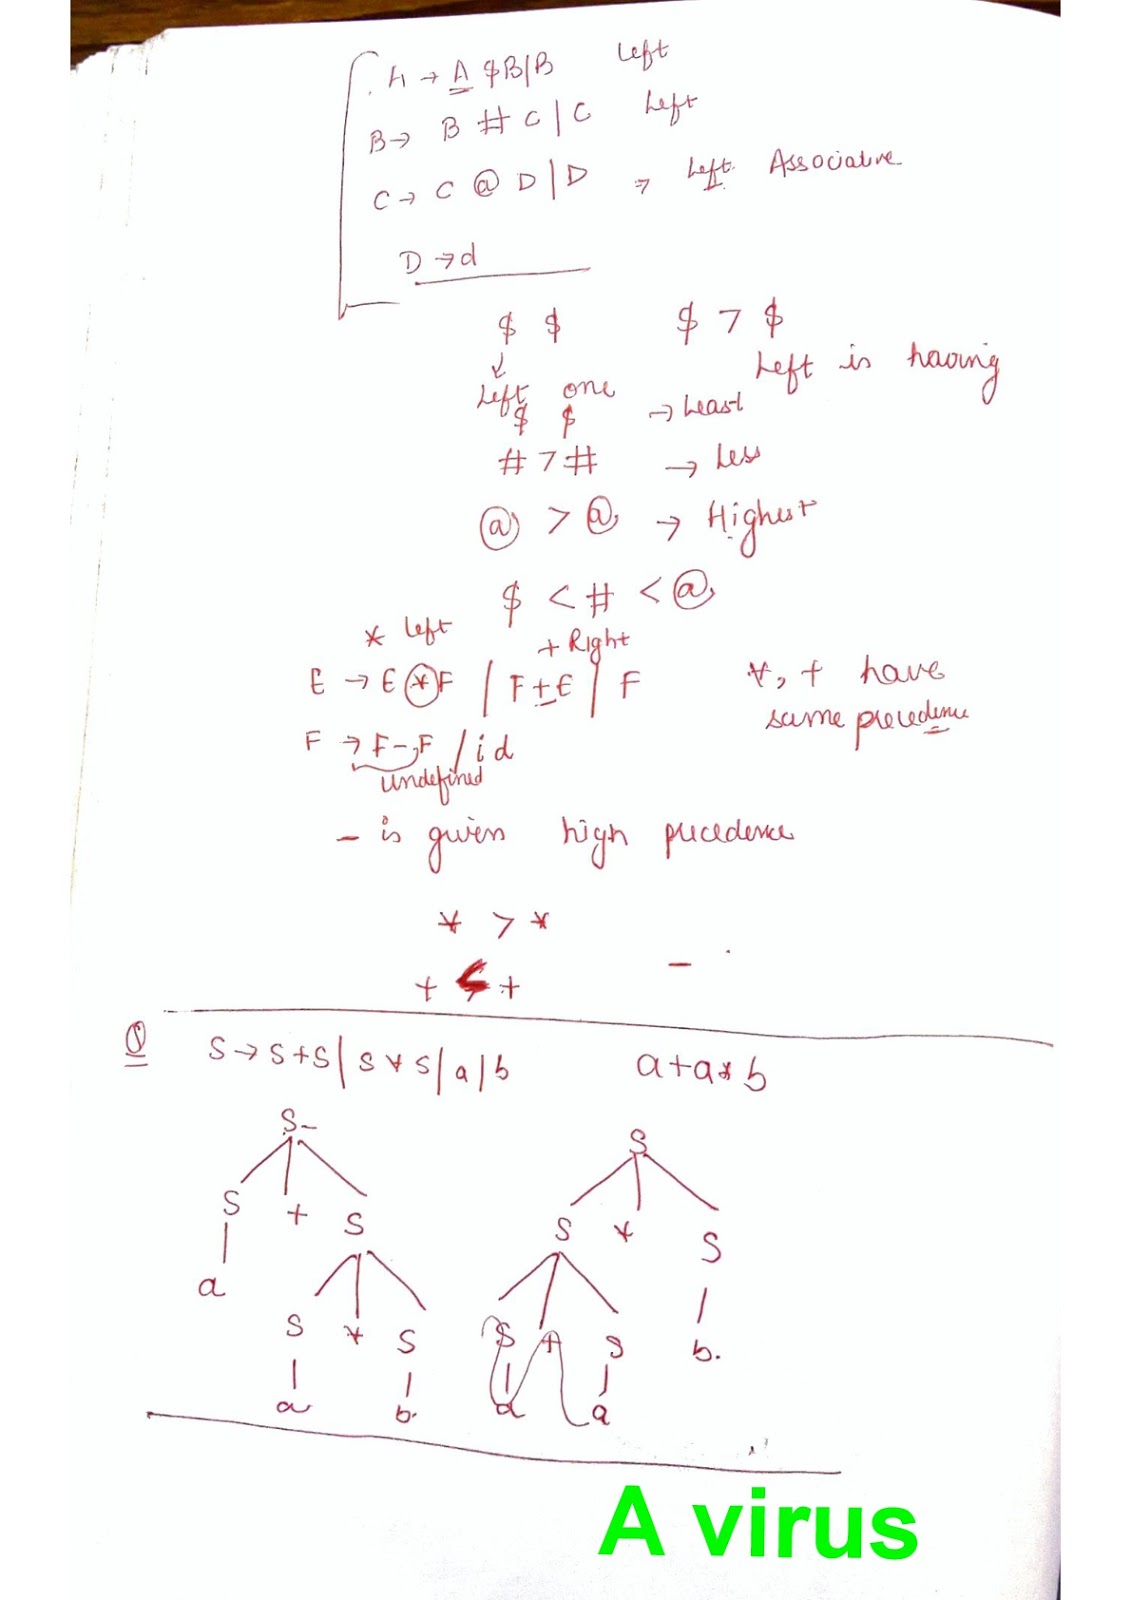 A → A $ B | B left
B → B # C | C left
C → C @ D | D → left Associative
D → d
$ $ $ > $
left one left is having
$ $ → least
# > # → less
@ > @ → Highest
$ < # < @
* left + Right
E → E * F / F + E / F *, + have
same precedence
F → F - F / id
undefined
- is given high precedence
* > *
+ < + -
Q S → S + S | S * S | a | b a + a * b
S S
S + S S * S
a S * S S + S b.
a b. a a
A virus